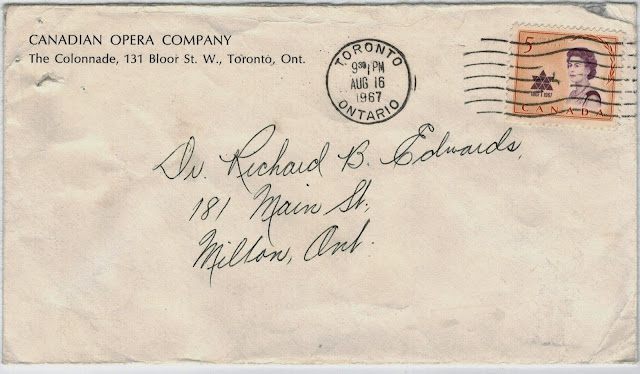 CANADIAN OPERA COMPANY
The Colonnade, 131 Bloor St. W., Toronto, Ont.
TORONTO
PM
AUG 16
1967
ONTARIO
5
CANADA
Dr. Richard B. Edwards,
181 Main St.
Milton, Ont.